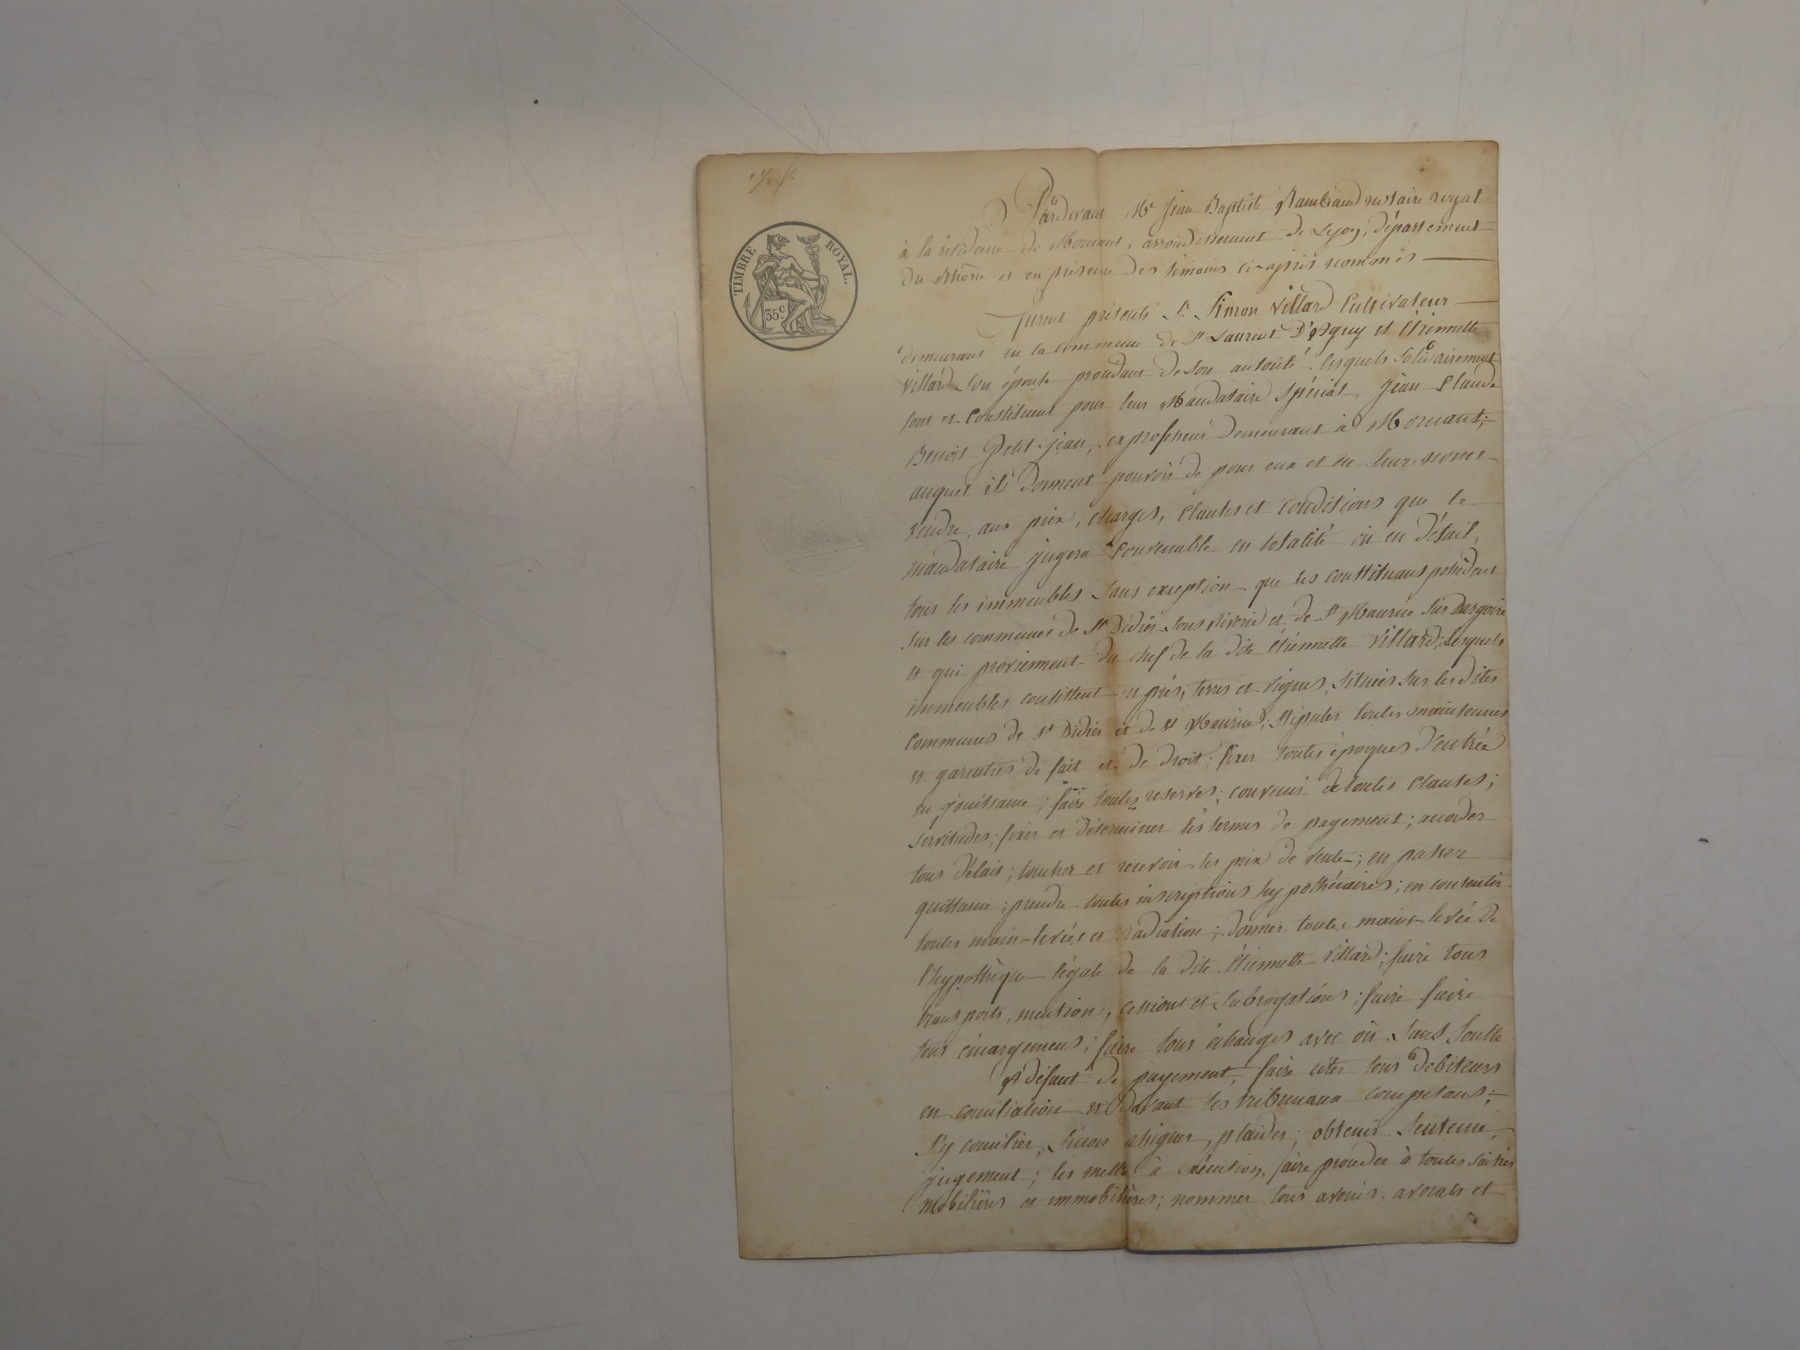 TIMBRE ROYAL.
35.c
Pardevant Me Jean Baptiste Raimbaud notaire royal
à la résidence de Mornant, arrondissement de Lyon, département
du Rhône et en présence des témoins ci-après nommés
Furent présents Sr Simon Villard Cultivateur
demeurant en la commune de St Laurent D'Agny et Etiennette
Villard son épouse procédant de son autorité lesquels solidairement
font et constituent pour leur Mandataire spécial Jean Claude
Benoit Petit-jean, ex professeur demeurant à Mornant;
auquel ils donnent pouvoir de pour eux et en leur noms
vendre, aux prix, charges, clauses et conditions que le
mandataire jugera convenable en totalité ou en détail,
tous les immeubles sans exception que les constituans possèdent
sur les communes de St Didier sous Riverie et de St Maurice sur Dargoire
et qui proviennent du chef de la dite Etiennette Villard; lesquels
immeubles consistent en prés, terres et vignes, situées sur les dites
communes de St Didier et de St Maurice; stipuler toutes maintenues
et garenties de fait et de droit; fixer toutes époques d'entrée
en jouissance; faire toutes reserves; convenir de toutes clauses;
servitudes; fixer et déterminer les termes de payement; accorder
tous délais; toucher et recevoir les prix de vente; en passer
quittance; prendre toutes inscriptions hypothécaires; en consentir
toutes main-levées et radiation; donner toute main-levée de
l'hypothèque légale de la dite Etiennette Villard; faire tous
transports, mention, cessions et subrogations; faire faire
tous émargemens; faire tous échanges avec ou sans soulte
A défaut de payement, faire citer tous debiteurs
en conciliation et devant les tribunaux compétans;
s'y concilier, sinon assigner, plaider, obtenir sentence,
jugement; les mettre à exécution, faire procéder à toutes saisies
mobilières et immobilières; nommer tous avoués, avocats et